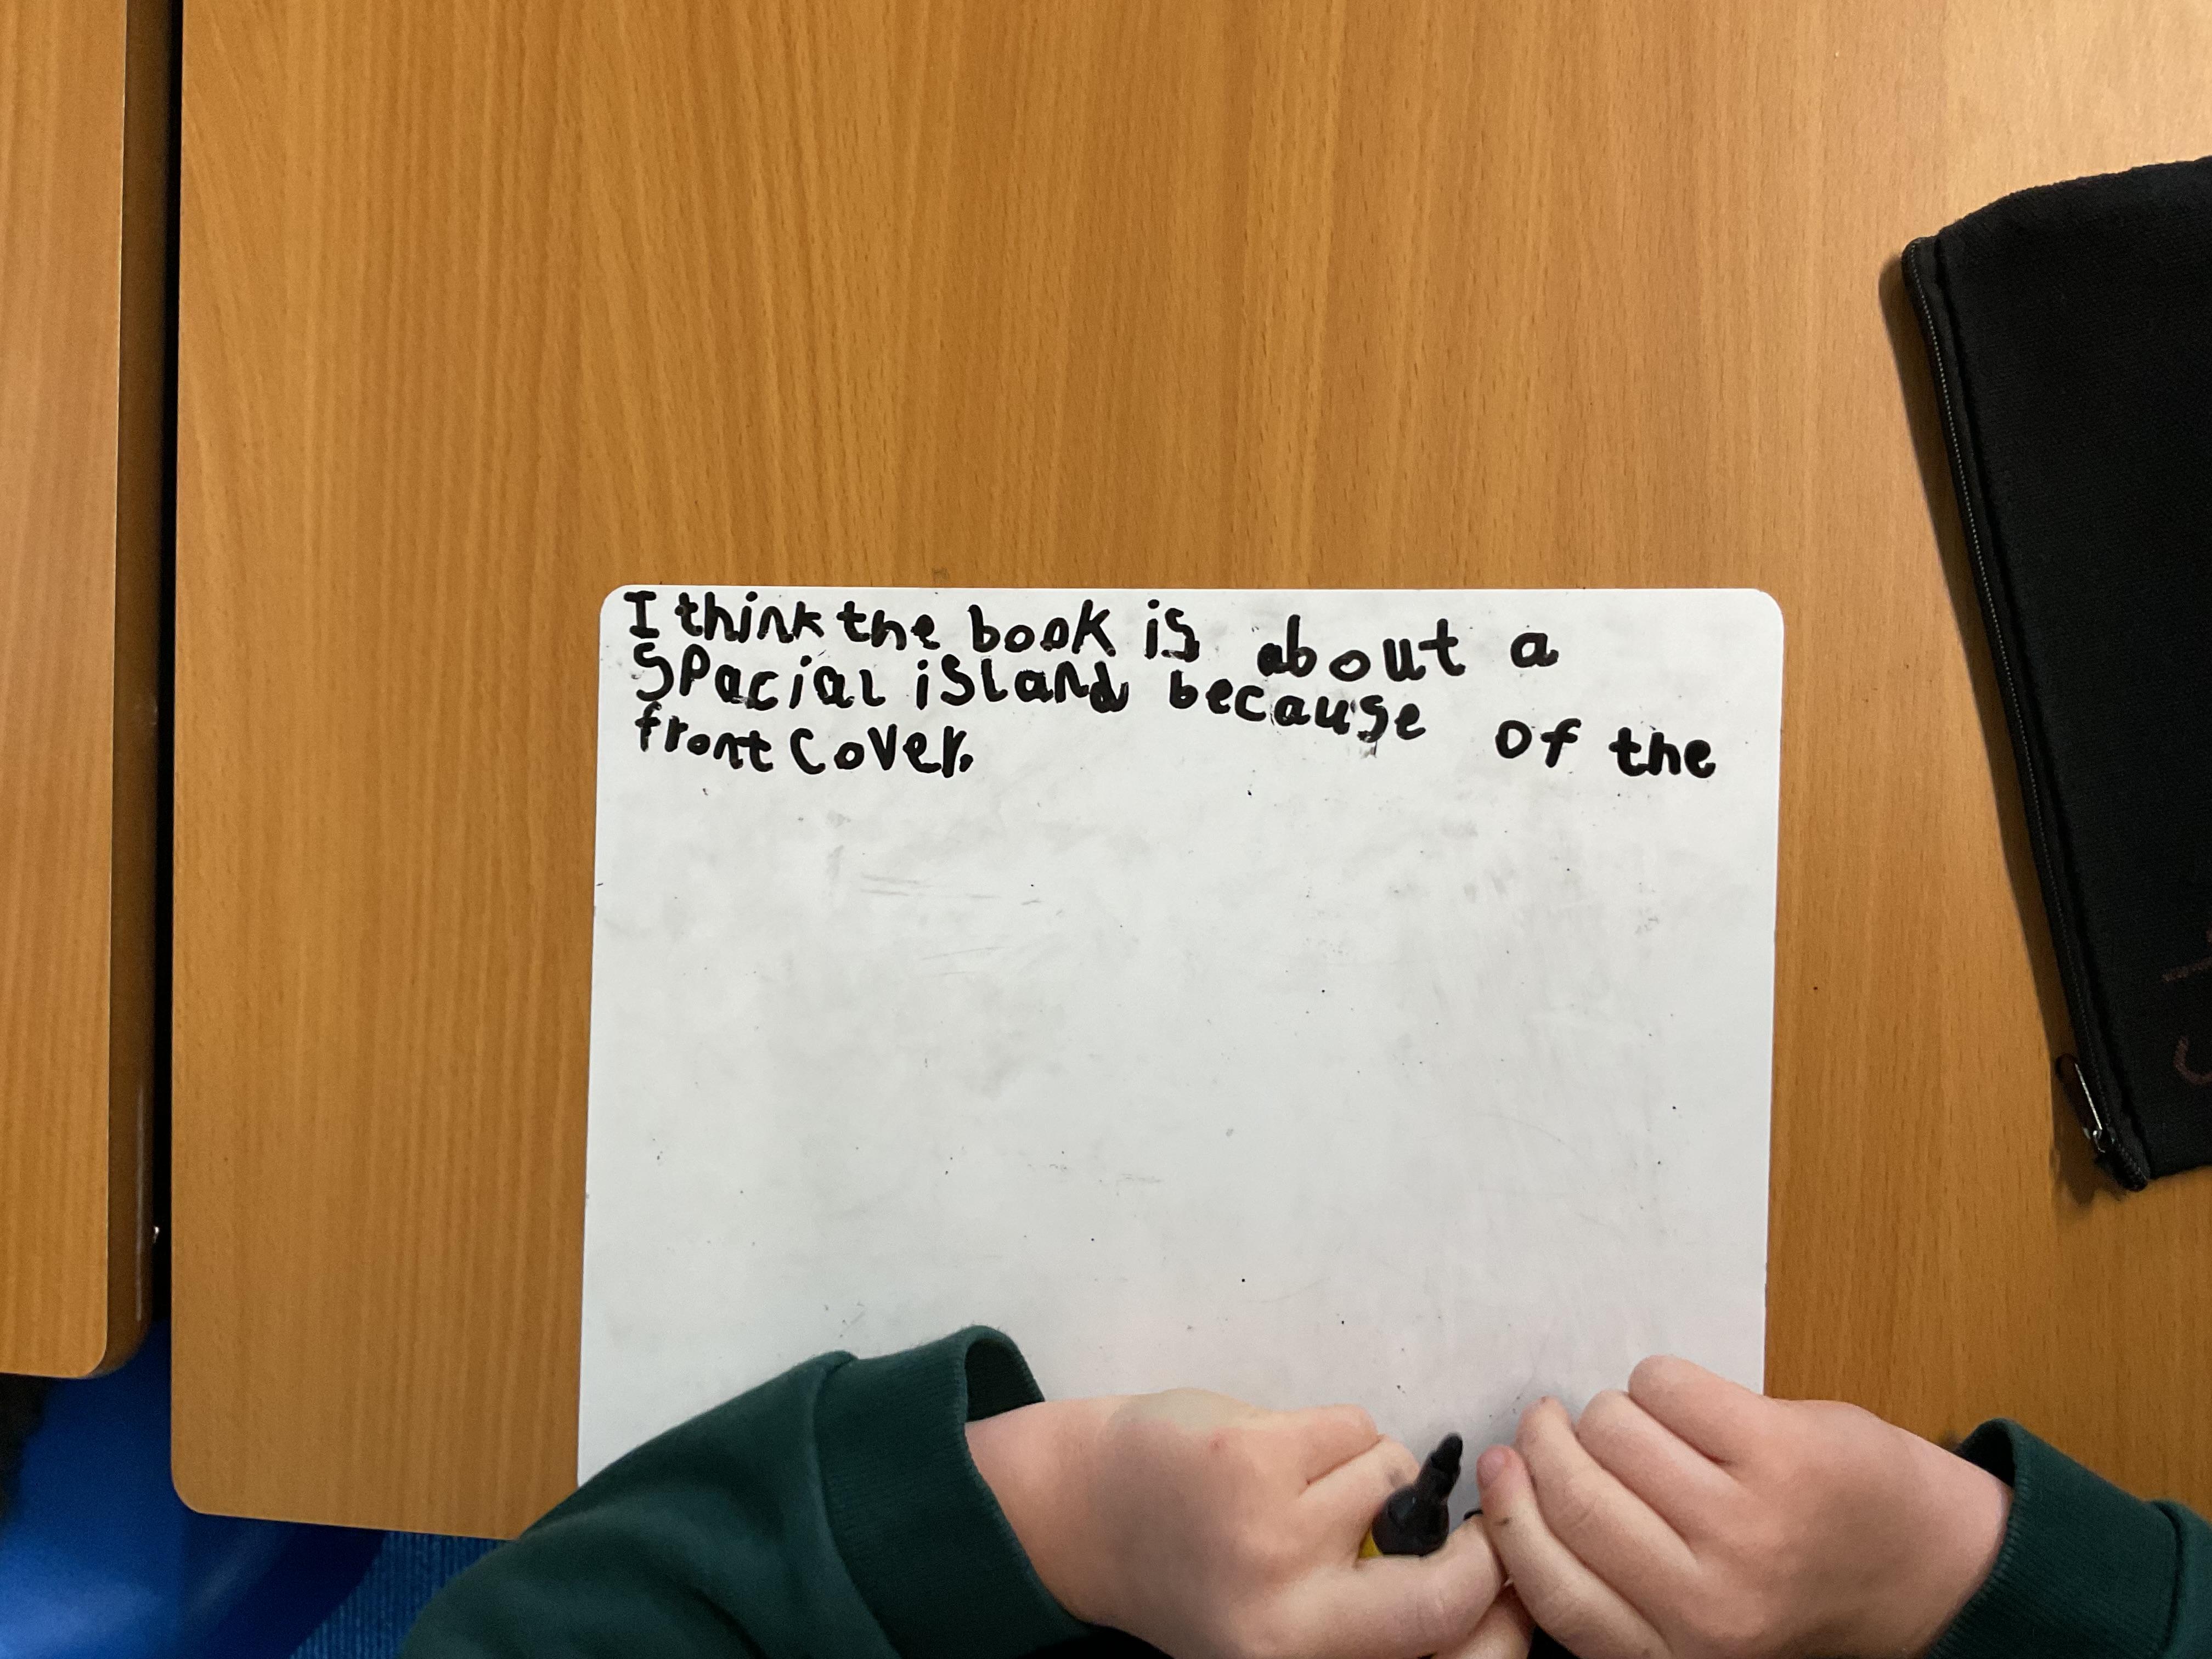 I think the book is about a
spacial island because of the
front cover.